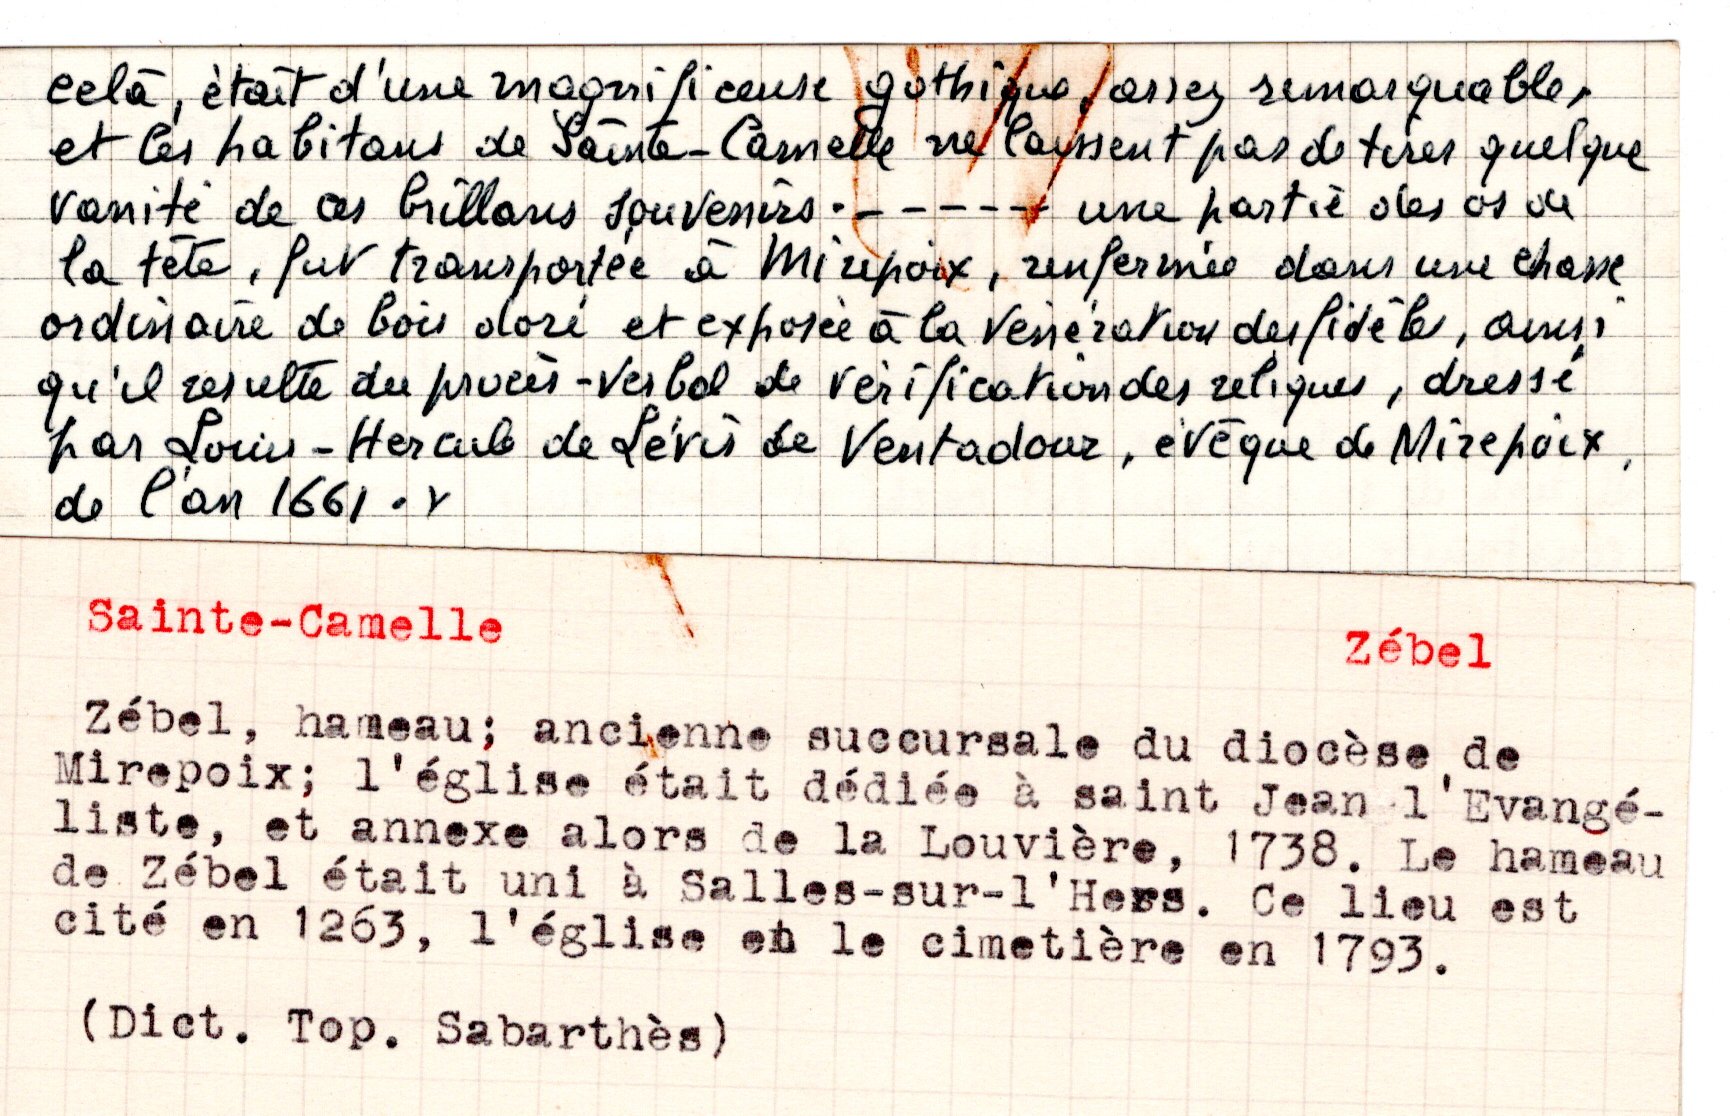 celà, était d'une magnificense gothique, assez remarquable,
et les habitans de Sainte-Camelle ne laissent pas de tirer quelque
vanité de ces brillans souvenirs. ------ une partie des os de
la tête, fut transportée à Mirepoix, renfermée dans une chasse
ordinaire de bois doré et exposée à la vénération des fidèles, ainsi
qu'il resulte du procès-verbal de vérification des reliques, dressé
par Louis-Hercule de Lévis de Ventadour, évêque de Mirepoix,
de l'an 1661.
Sainte-Camelle
Zébel
Zébel, hameau; ancienne succursale du diocèse de
Mirepoix; l'église était dédiée à saint Jean l'Evangé-
liste, et annexe alors de la Louvière, 1738. Le hameau
de Zébel était uni à Salles-sur-l'Hers. Ce lieu est
cité en 1263, l'église et le cimetière en 1793.
(Dict. Top. Sabarthès)